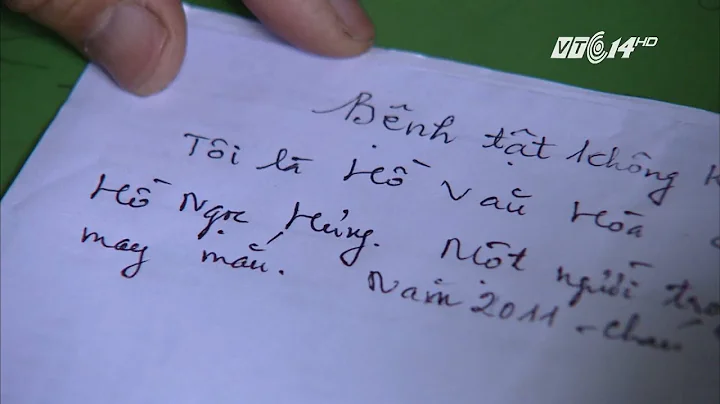 VTC14 HD
Bệnh tật không
Tôi là Hồ Văn Hòa
Hồ Ngọc Hưng. Một người
may mắn. Năm 2011 - cháu